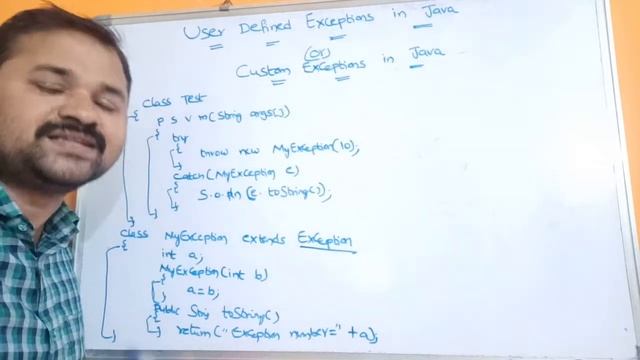 User Defined Exceptions in Java
(or)
Custom Exceptions in Java
class Test
{
p s v m(String args[])
{
try
{
throw new MyException(10);
}
catch(MyException e)
{
S.o.pln(e.toString());
}
}
}
class MyException extends Exception
{
int a;
MyException(int b)
{
a=b;
}
public String toString()
{
return("Exception number="+a);
}
}